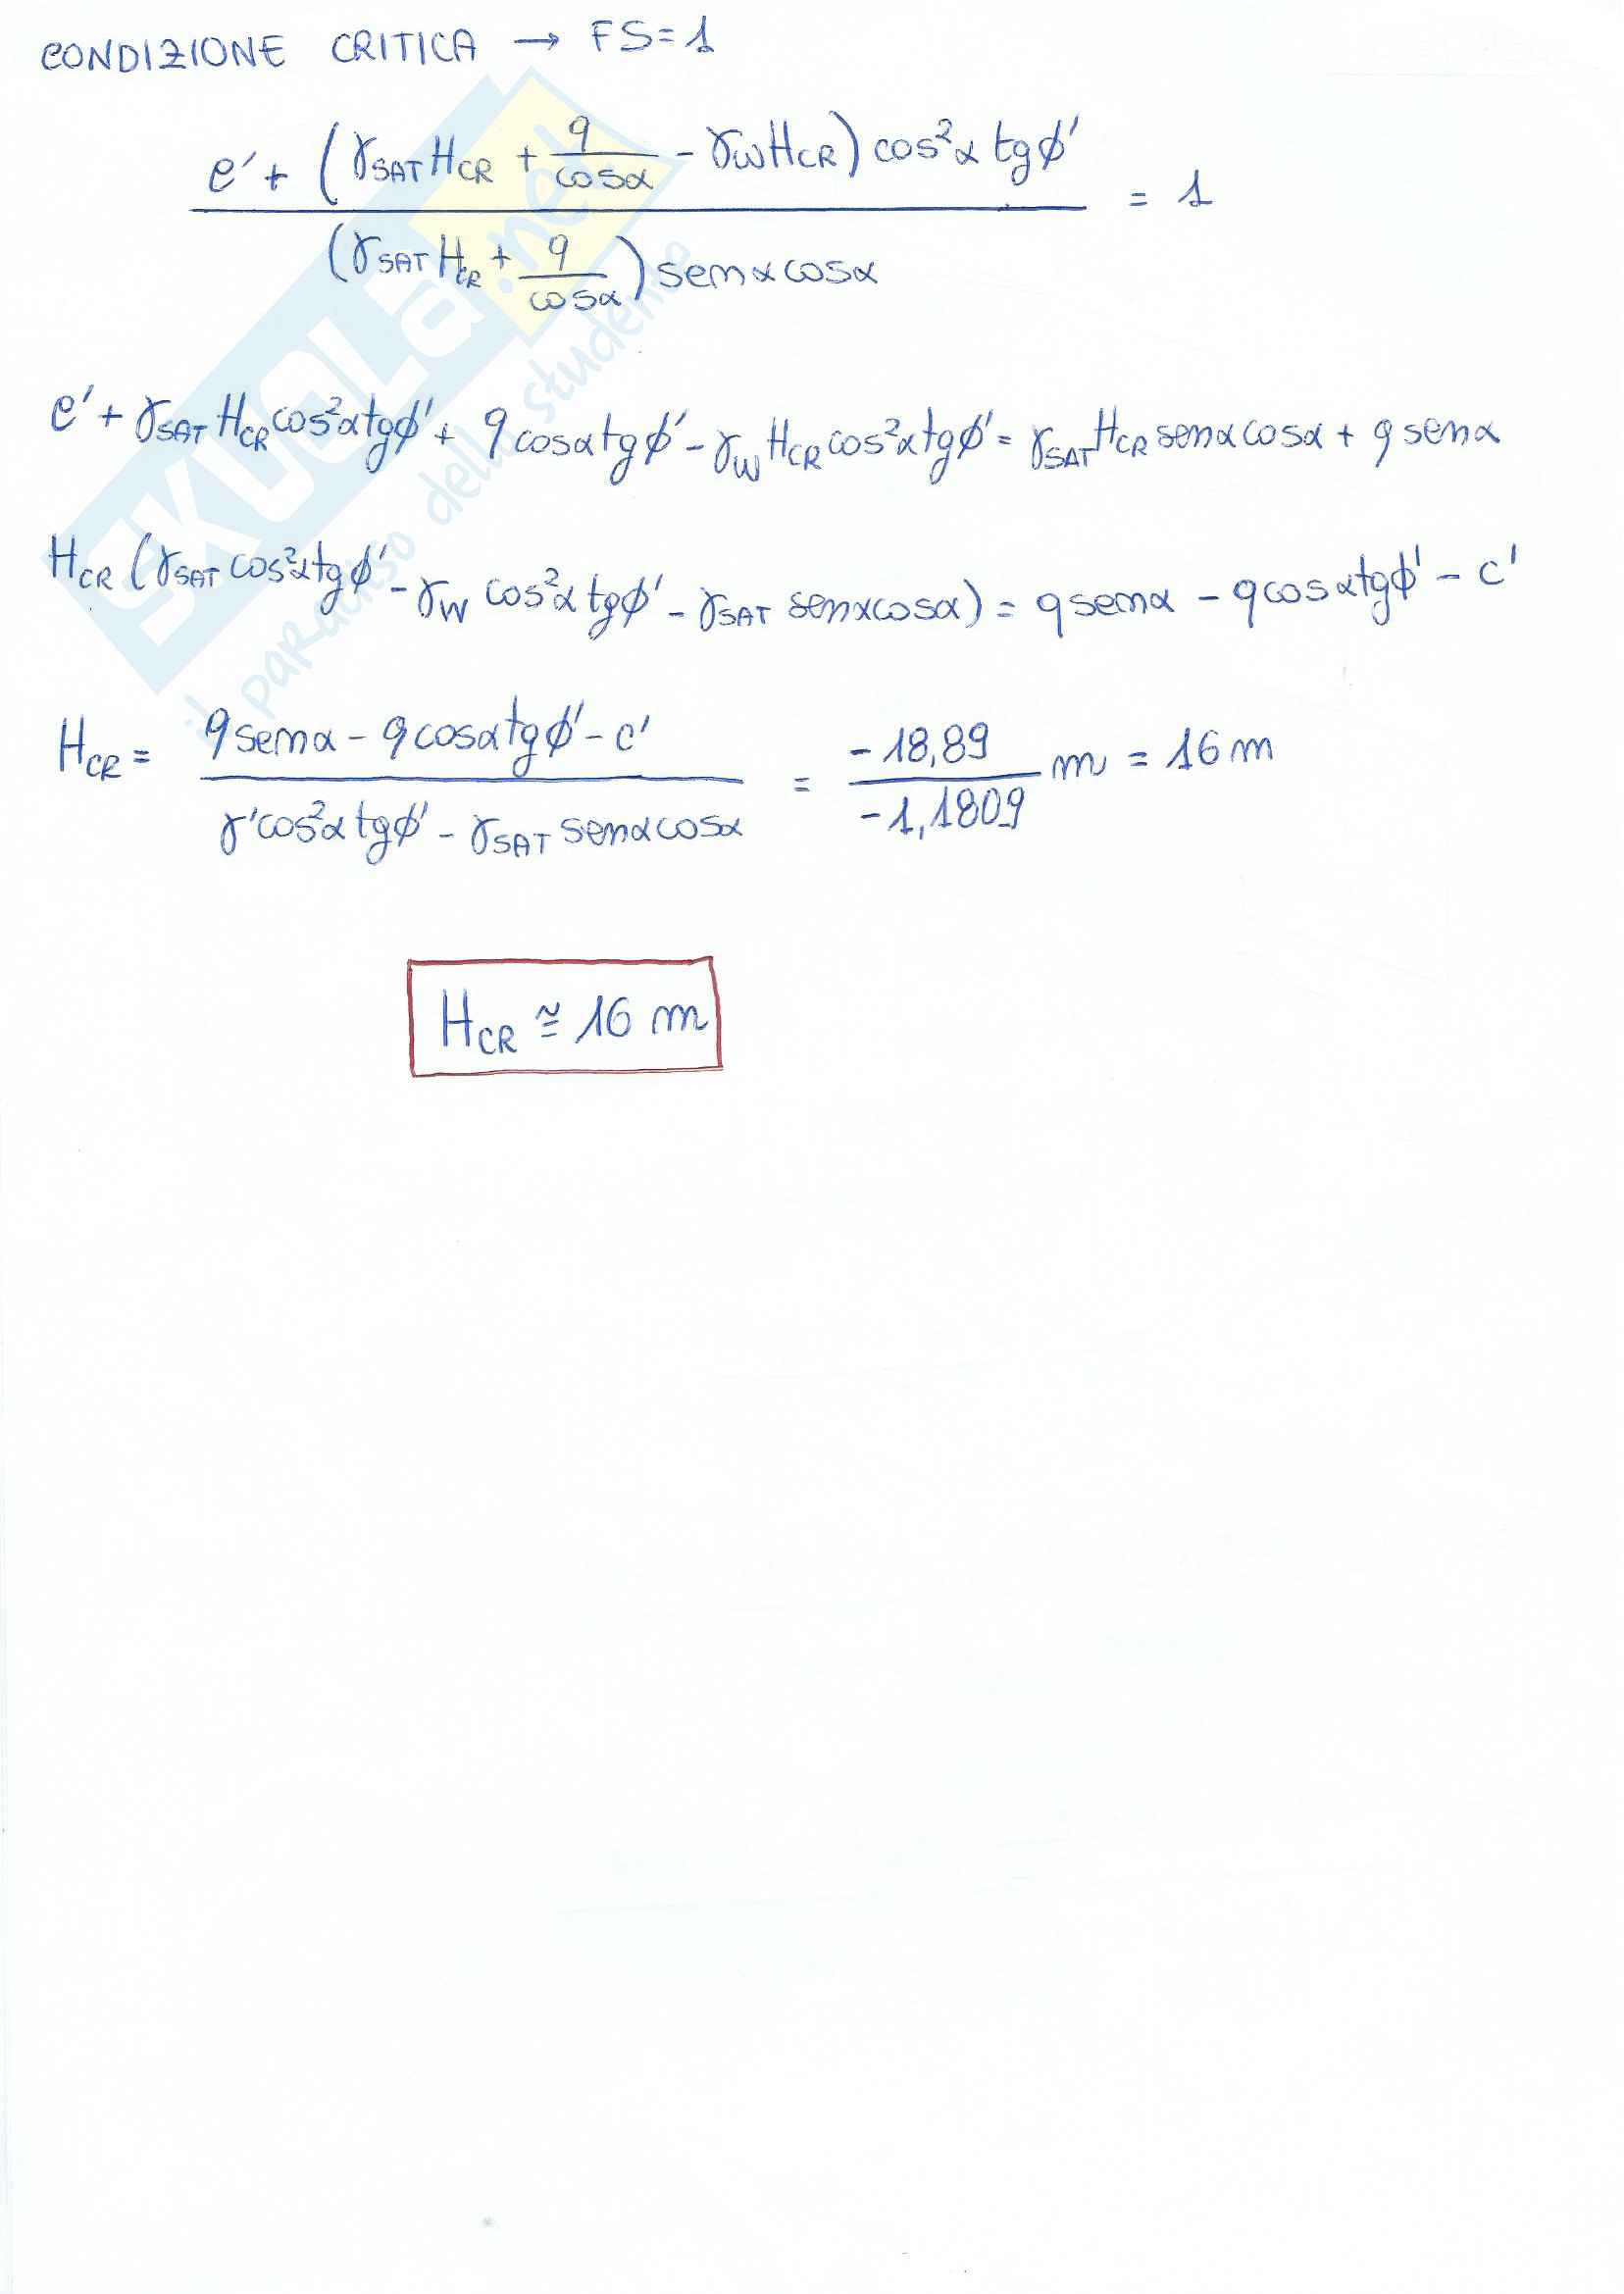 CONDIZIONE CRITICA → FS=1
c' + (γSAT HCR + q/cosα - γW HCR) cos²α tgφ' / (γSAT HCR + q/cosα) senα cosα = 1
c' + γSAT HCR cos²α tgφ' + q cosα tgφ' - γW HCR cos²α tgφ' = γSAT HCR senα cosα + q senα
HCR (γSAT cos²α tgφ' - γW cos²α tgφ' - γSAT senα cosα) = q senα - q cosα tgφ' - c'
HCR = q senα - q cosα tgφ' - c' / γ' cos²α tgφ' - γSAT senα cosα = -18,89 / -1,1809 m = 16 m
HCR ≅ 16 m
SKUOLA.net
il paradiso dello studente